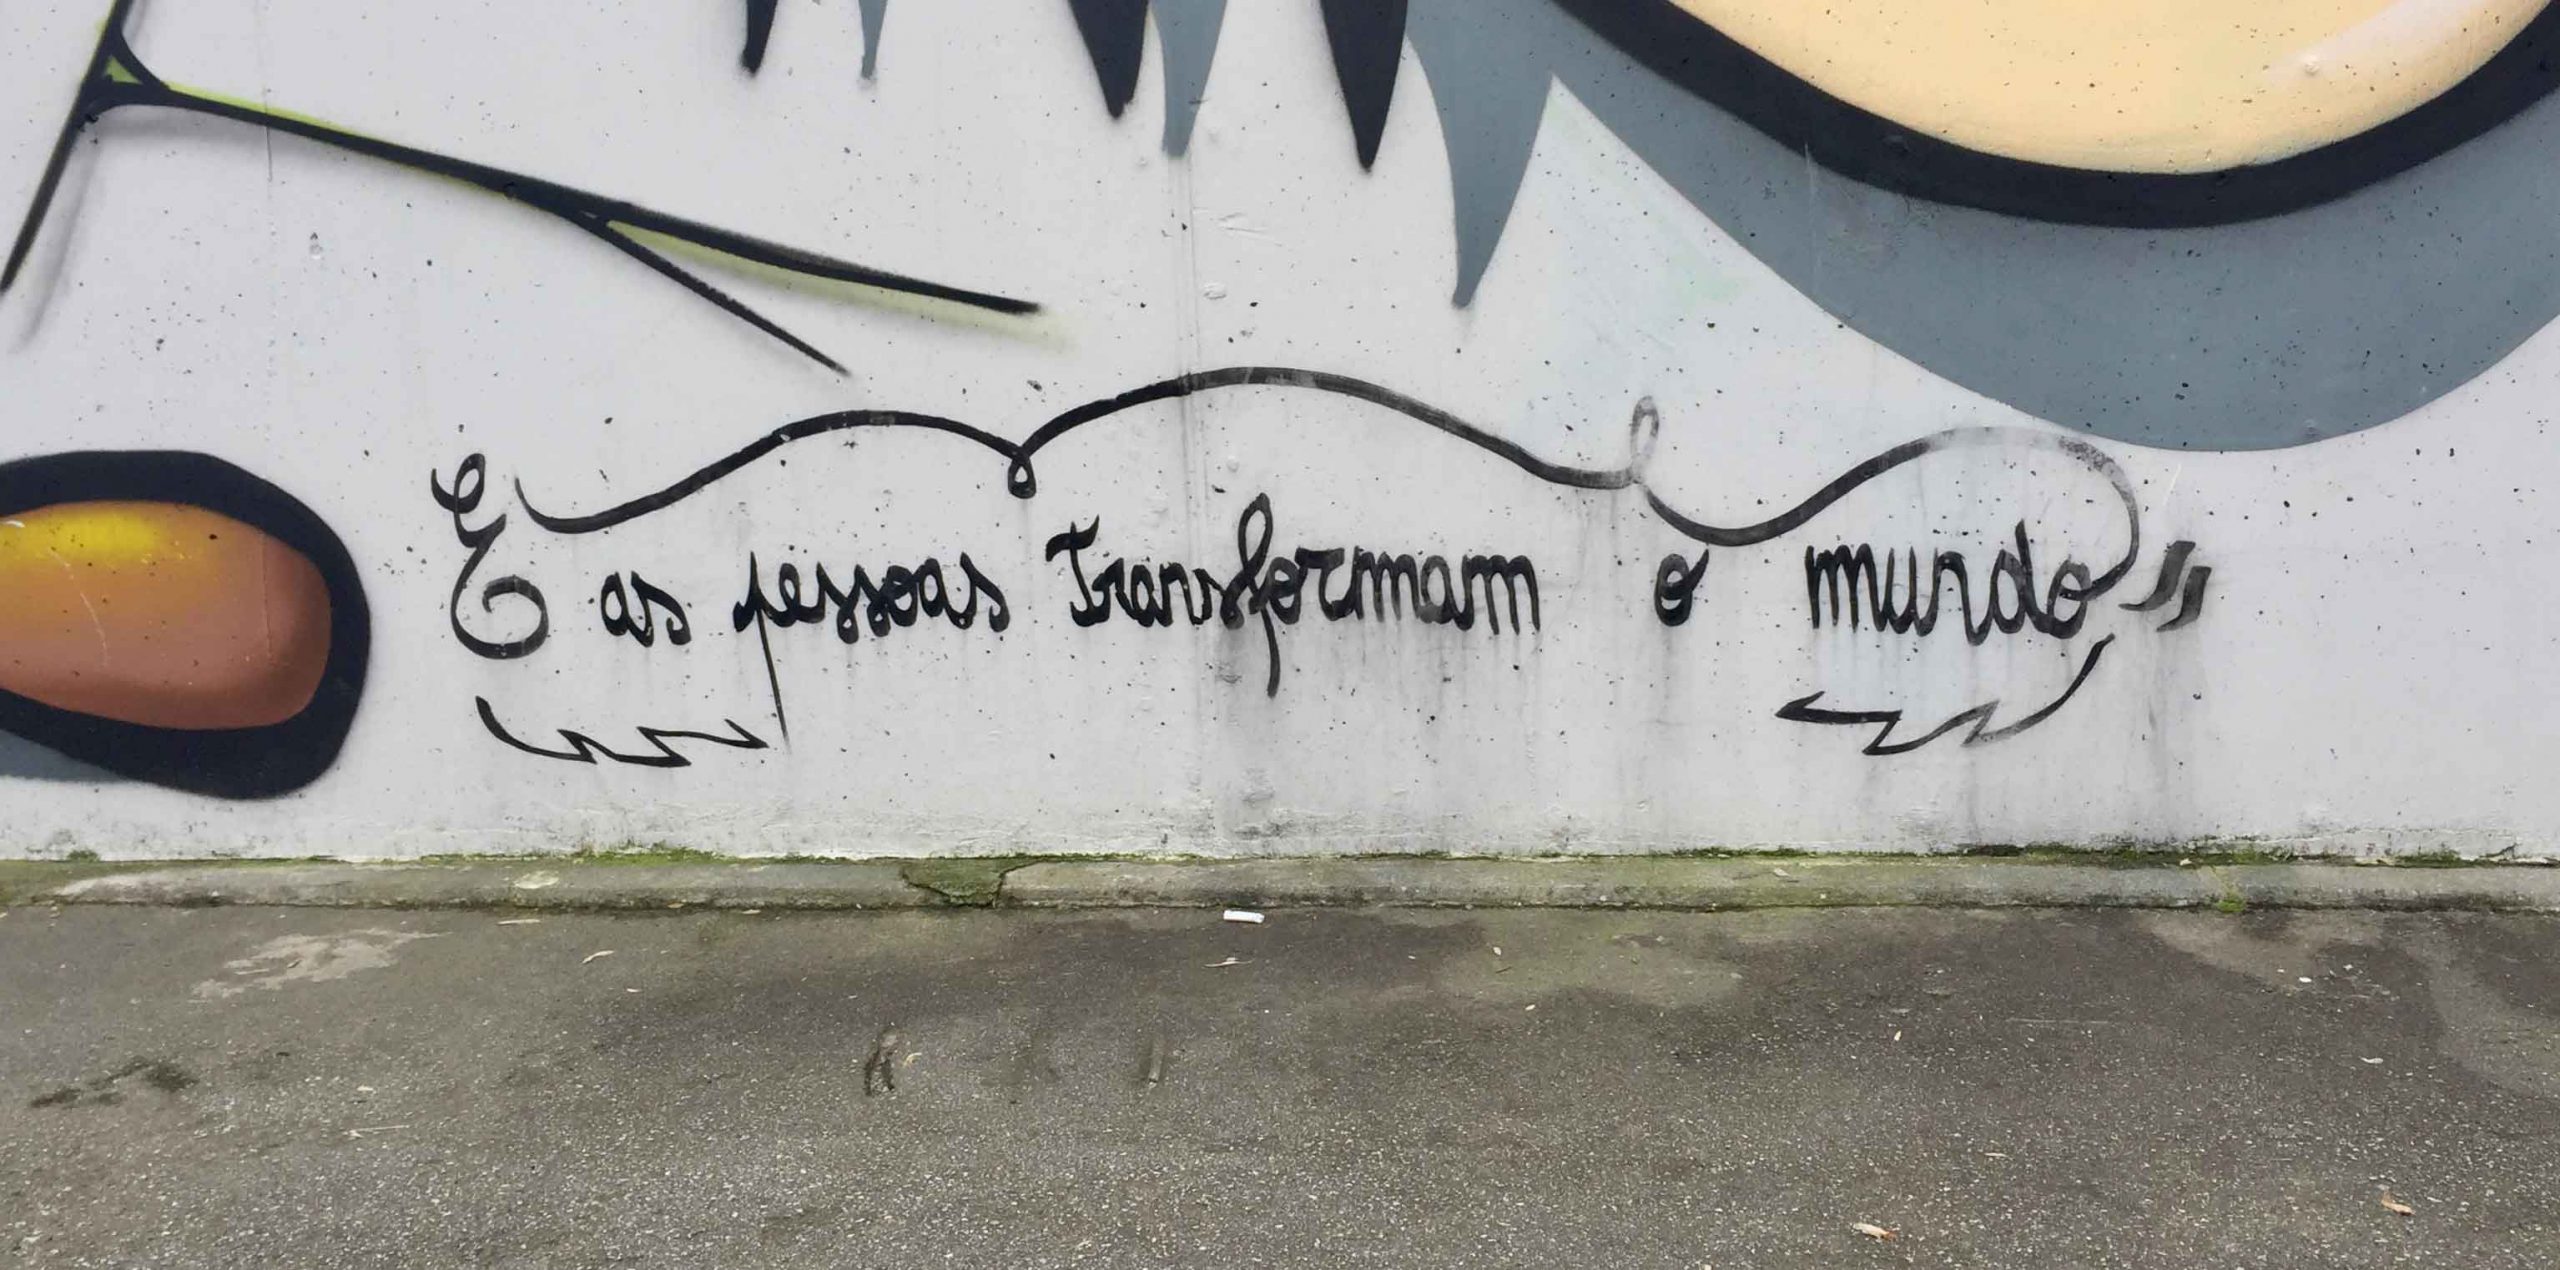 E as pessoas Transformam o mundo"